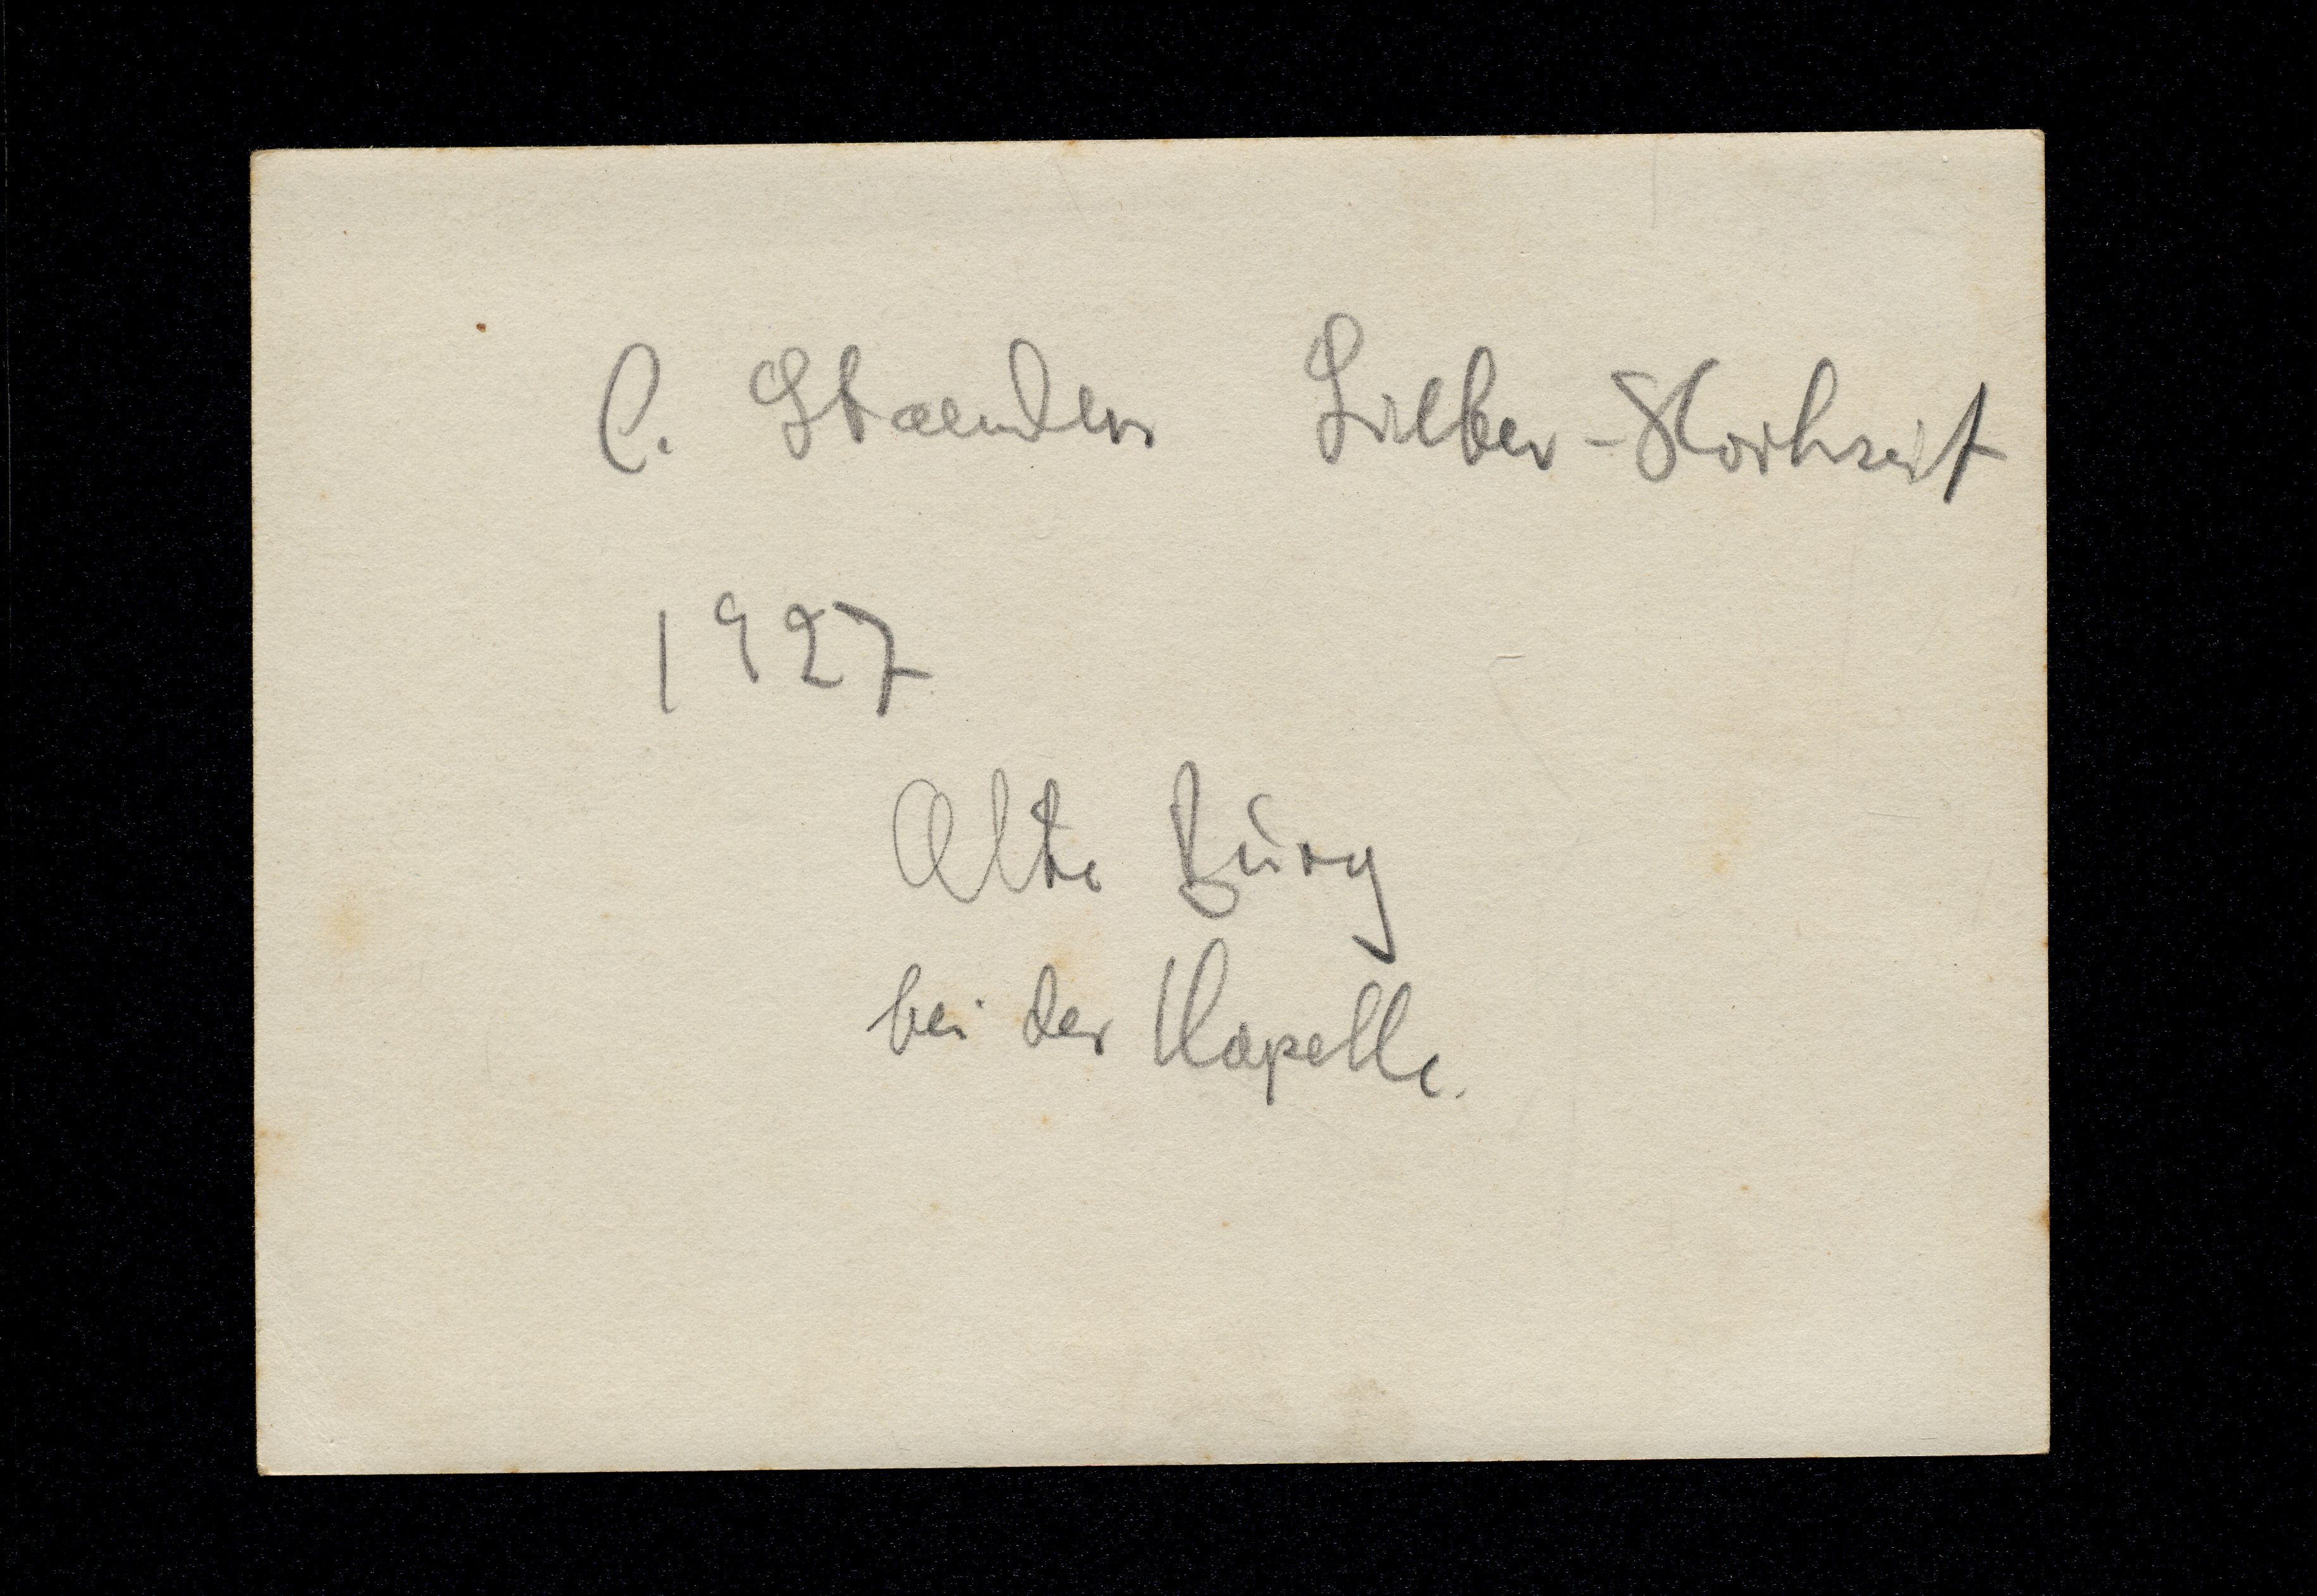 C. Staender Silber-Hochzeit
1927
Alte Burg
bei der Kapelle.